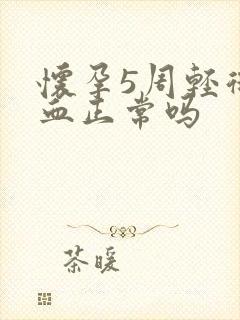 懷孕5周輕
血正常吗
茶暖